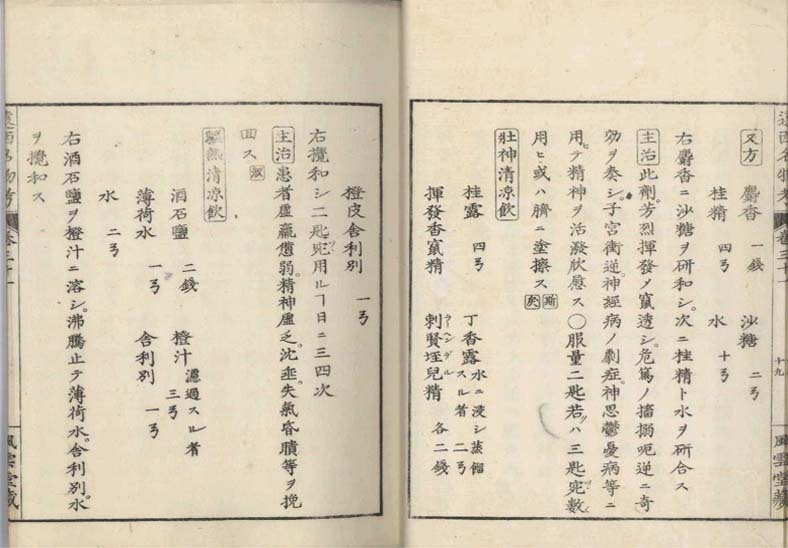 遠西名物考 卷三十一 十九 風雲堂藏
又方 麝香 一錢 沙糖 二ヲ
桂精 四ヲ 水 十ヲ
右麝香ニ沙糖ヲ研和シ。次ニ桂精ト水ヲ研合ス
主治 此劑。芳烈揮發ノ竄透シ。危篤ノ搐搦呃逆ニ奇
効ヲ奏シ。子宮衝逆。神經病ノ劇症。神思鬱憂病等ニ
用テ精神ヲ活潑欣慰ス〇服量二匙若クハ三匙兊數
用ヒ或ハ臍ニ塗擦ス
壯神清凉飲
桂露 四ヲ 丁香露 水ニ浸シ蒸餾スル者 二ヲ
揮發香竄精 刺賢垤兒精 各二錢
橙皮舍利別 一ヲ
右攪和シ二匙兊用ルヿ日ニ三四次
主治 患者虛羸憊弱。精神虛乏。沈埀。失氣昏瞶等ヲ挽
回ス
驅熱清凉飲
酒石鹽 二錢 橙汁 濾過スル者 三ヲ
薄荷水 一ヲ 舍利別 一ヲ
水 二ヲ
右酒石鹽ヲ橙汁ニ溶シ。沸騰止テ薄荷水。舍利別。水
ヲ攪和ス
遠西名物考 卷三十一 風雲堂藏